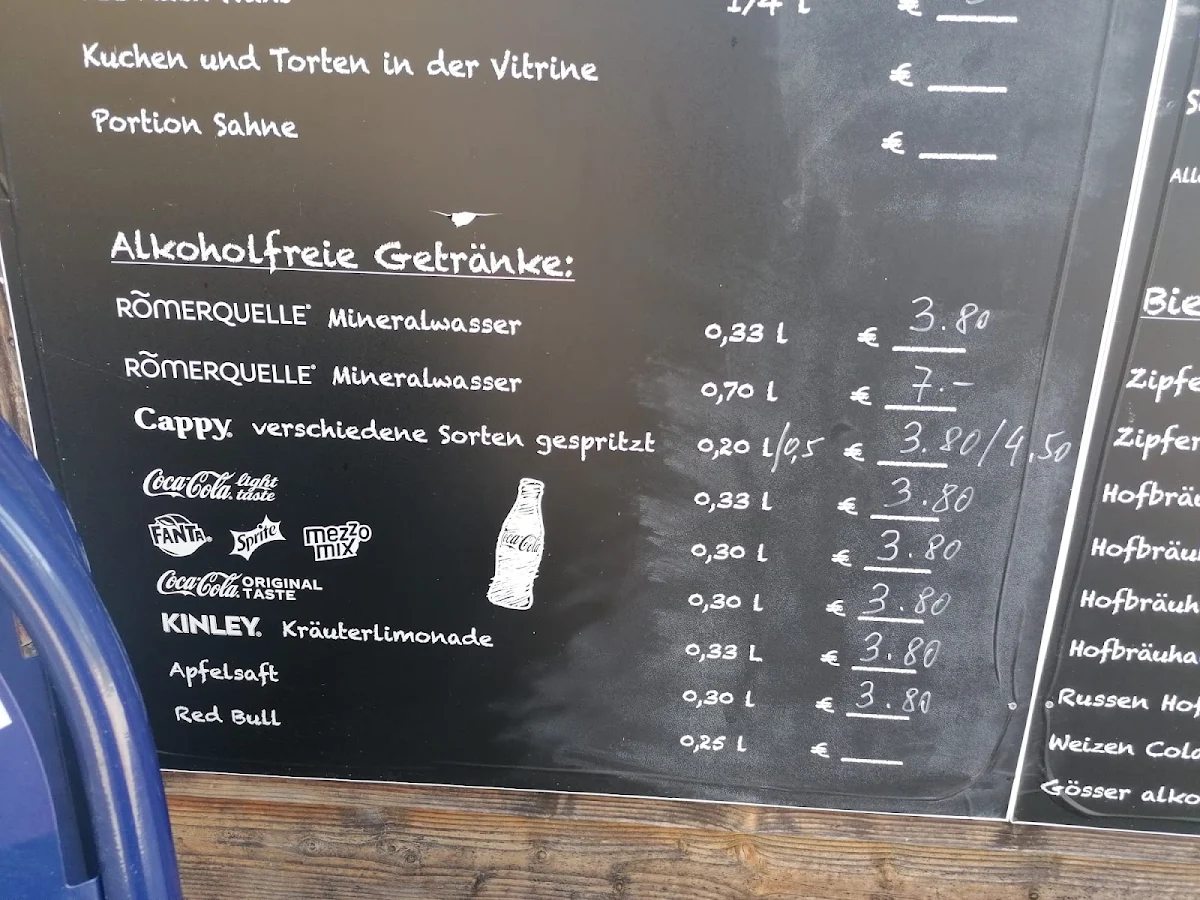 1/4 l €
Kuchen und Torten in der Vitrine € ____
Portion Sahne € ____
Alkoholfreie Getränke:
RÖMERQUELLE® Mineralwasser 0,33 l € 3.80
RÖMERQUELLE® Mineralwasser 0,70 l € 7.-
Cappy. verschiedene Sorten gespritzt 0,20 l/0,5 € 3.80/4.50
Coca-Cola light taste 0,33 l € 3.80
FANTA Sprite mezzo mix 0,30 l € 3.80
Coca-Cola ORIGINAL TASTE 0,30 l € 3.80
Coca-Cola
KINLEY. Kräuterlimonade 0,33 l € 3.80
Apfelsaft 0,30 l € 3.80
Red Bull 0,25 l € ____
Bie
Zipfe
Zipfer
Hofbräu
Hofbräuh
Hofbräuh
Hofbräuha
Russen Hof
Weizen Cola
Gösser alko